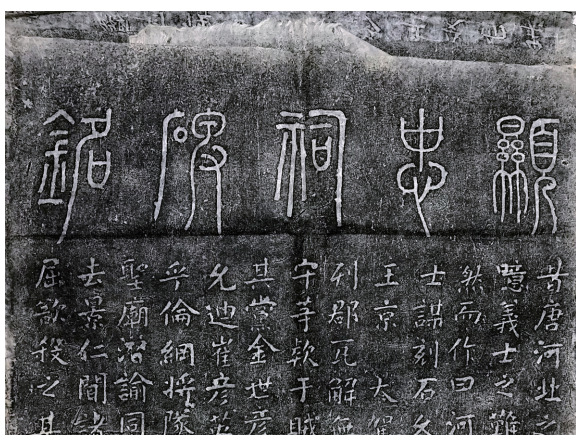 顯忠祠碑銘
昔唐河北之
噫義士之難
然而作曰河
士謀刻石
王京 大駕
列郡瓦解無
守等欵于賊
其黨金世彦
允迪崔彦英
乎倫綱將隊
聖廟潛諭同
去景仁間諸
屈欲殺之其